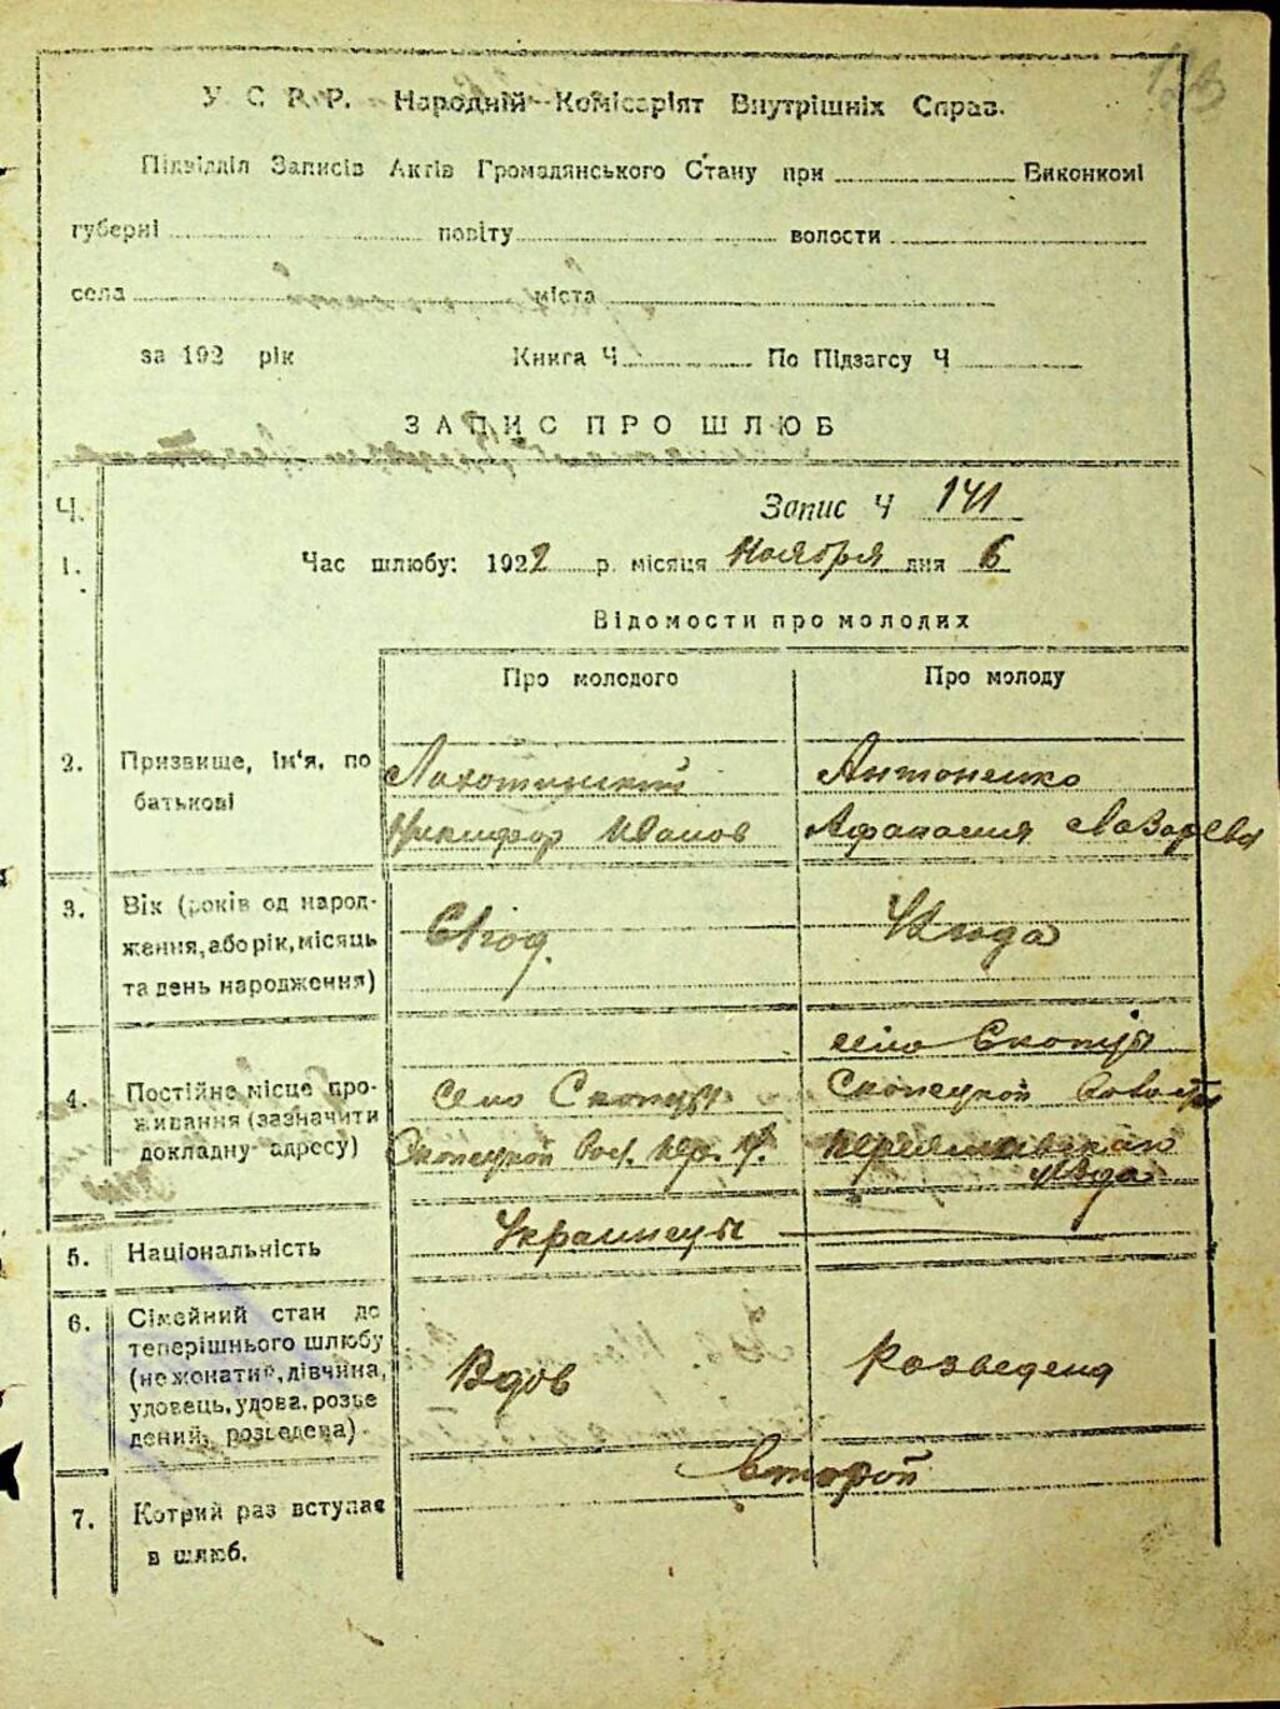 У С Р Р. Народній Комісаріят Внутрішніх Справ.
Підвідділ Записів Актів Громадянського Стану при Виконкомі
губерні повіту волости
села міста
за 192 рік Книга Ч. По Підзагсу Ч
ЗАПИС ПРО ШЛЮБ
Ч. Запис Ч 141
1. Час шлюбу: 1922 р. місяця Ноября дня 6
Відомости про молодих
Про молодого Про молоду
2. Призвище, ім'я, по батькові
Лахотинский Антоненко
Никифор Иванов Афанасия Лазарева
3. Вік (років од народ-
ження, або рік, місяць
та день народження)
год.
село Скопцы
4. Постійне місце про-
живання (зазначити
докладну адресу)
село Скопцы Скопецкой волости
Скопецкой вол. Пер. у. Переяславскаго
уезда
5. Національність Украинцы
6. Сімейний стан до
теперішнього шлюбу
(нежонатий, дівчина,
удовець, удова, розве
дений, розведена)
Вдов Розведена
7. Котрий раз вступає
в шлюб.
второй